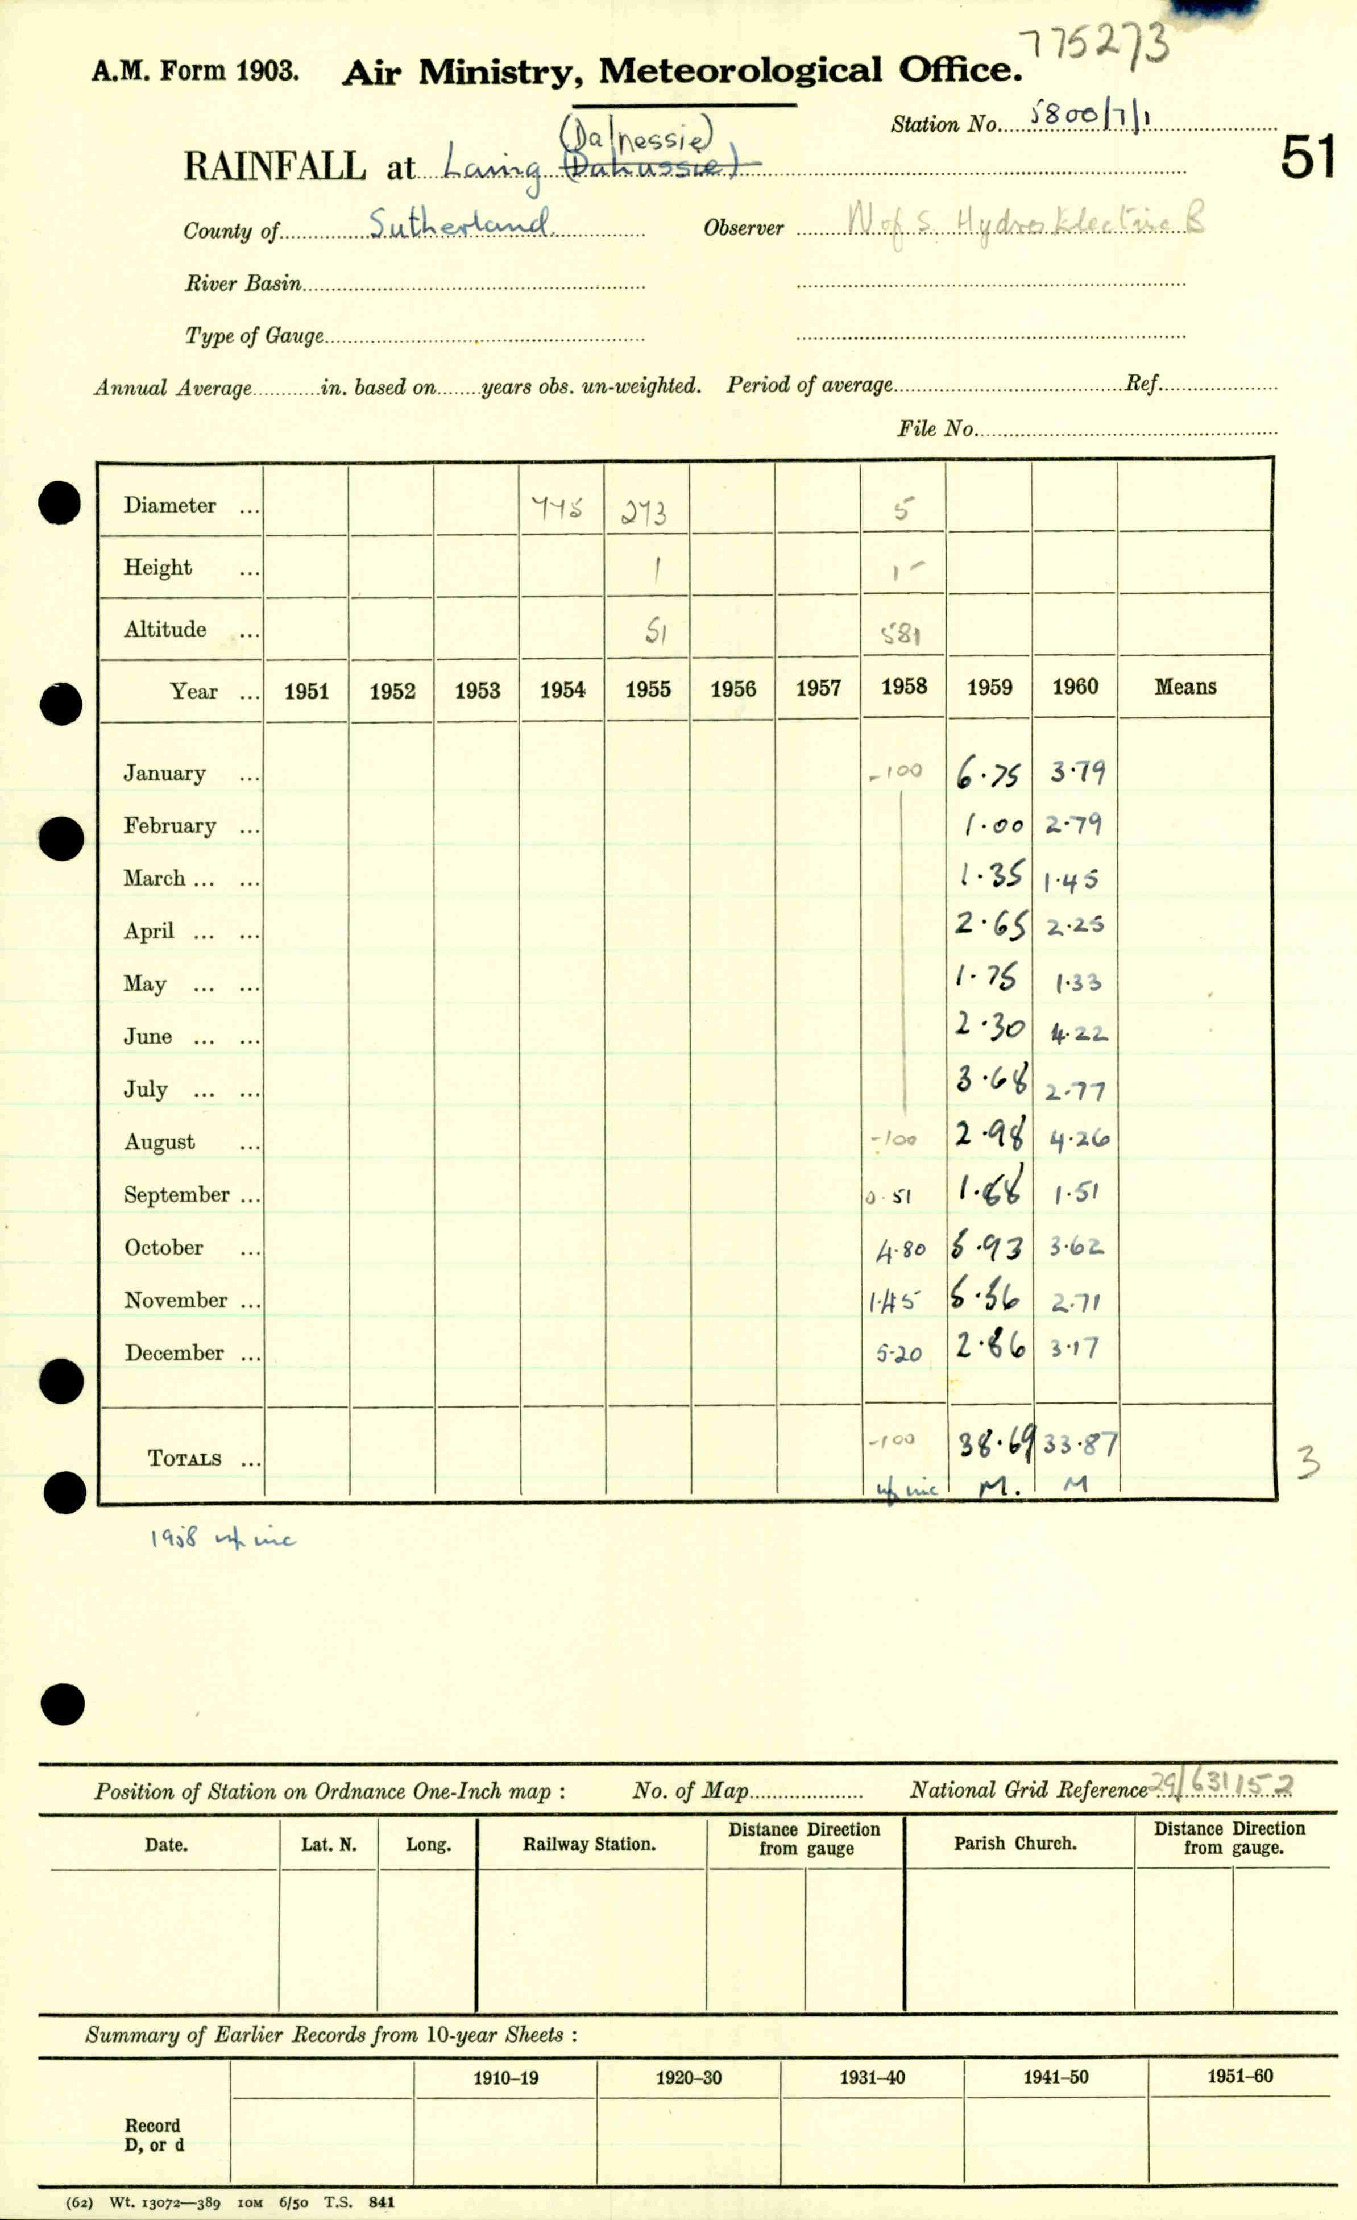 775273
A.M. Form 1903. Air Ministry, Meteorological Office.
Station No. 5800/7/1
(Dalnessie)
RAINFALL at Lairg (Dalnussie)
51
County of Sutherland Observer N of S. Hydro Electric B
River Basin
Type of Gauge
Annual Average in. based on years obs. un-weighted. Period of average Ref.
File No.
Diameter ... 775 273 5
Height ... 1 1-
Altitude ... 51 581
Year ... 1951 1952 1953 1954 1955 1956 1957 1958 1959 1960 Means
January ... -100 6.75 3.79
February ... 1.00 2.79
March ... ... 1.35 1.45
April ... ... 2.65 2.25
May ... ... 1.75 1.33
June ... ... 2.30 4.22
July ... ... 3.68 2.77
August ... -100 2.98 4.26
September ... 0.51 1.88 1.51
October ... 4.80 5.93 3.62
November ... 1.45 5.56 2.71
December ... 5.20 2.86 3.17
TOTALS ... -100 38.69 33.87
3
inc M. M
1958 inc
Position of Station on Ordnance One-Inch map : No. of Map National Grid Reference 29/631152
Date. Lat. N. Long. Railway Station. Distance from Direction gauge Parish Church. Distance from Direction gauge.
Summary of Earlier Records from 10-year Sheets :
1910–19 1920–30 1931–40 1941–50 1951–60
Record
D, or d
(62) Wt. 13072—389 10M 6/50 T.S. 841